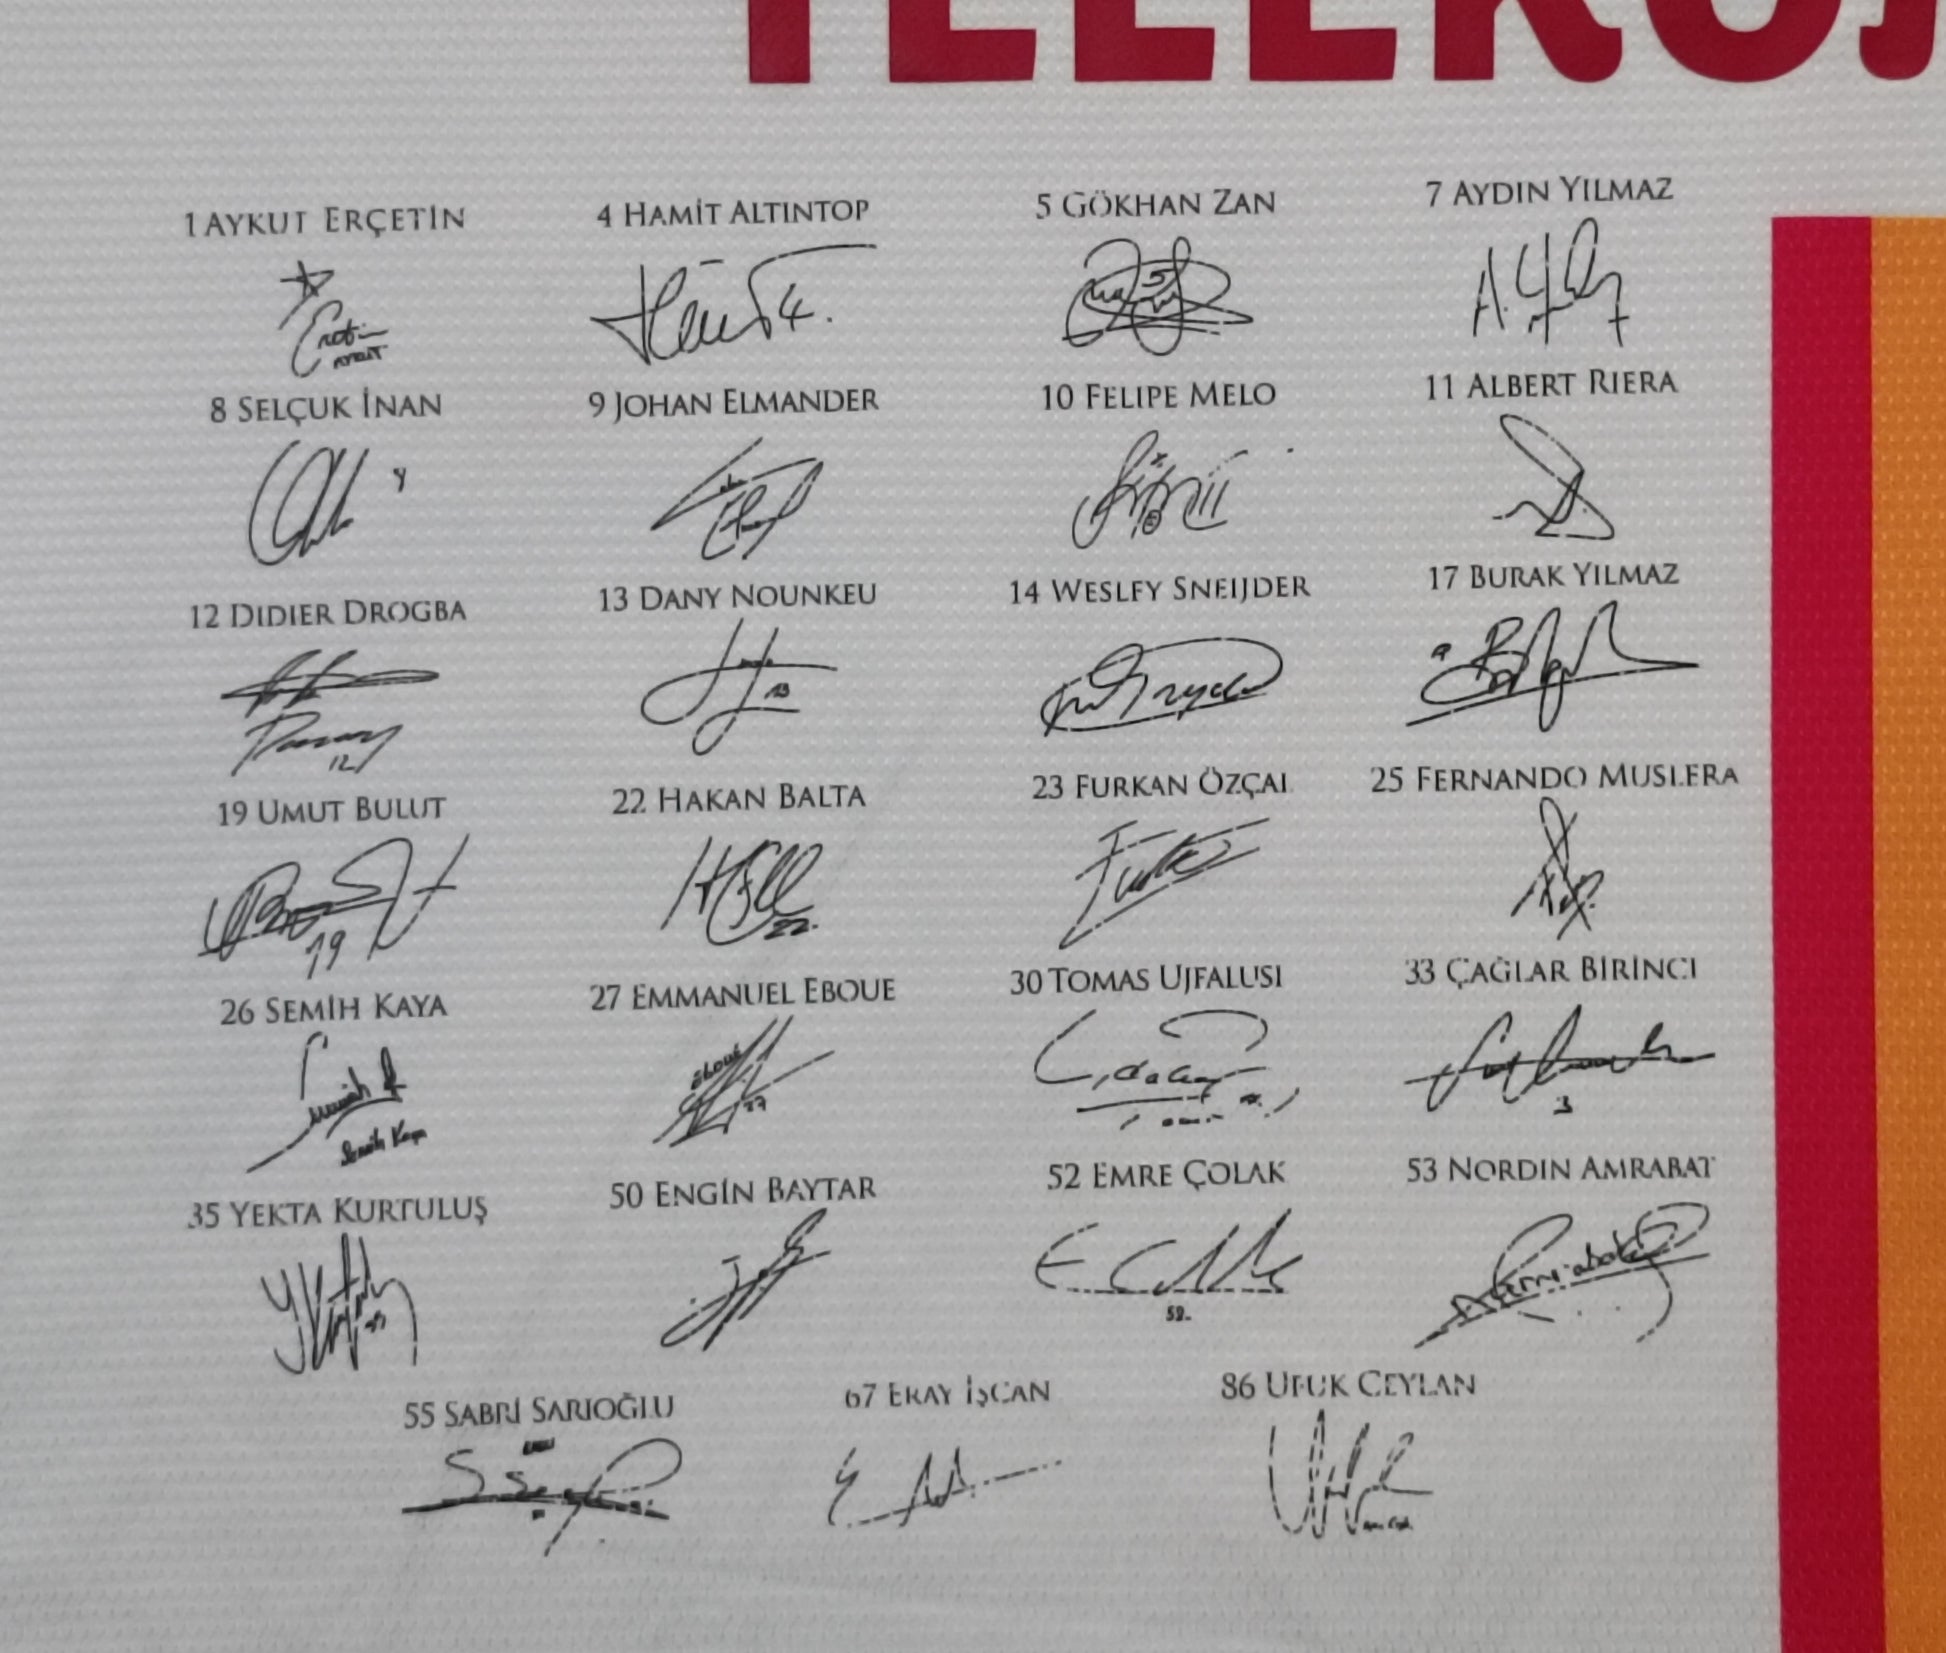 TELEKO
1 AYKUT ERÇETİN 4 HAMİT ALTINTOP 5 GÖKHAN ZAN 7 AYDIN YILMAZ
8 SELÇUK İNAN 9 JOHAN ELMANDER 10 FELIPE MELO 11 ALBERT RIERA
12 DIDIER DROGBA 13 DANY NOUNKEU 14 WESLEY SNEIJDER 17 BURAK YILMAZ
12 13
19 UMUT BULUT 22 HAKAN BALTA 23 FURKAN ÖZÇAL 25 FERNANDO MUSLERA
19 22.
26 SEMİH KAYA 27 EMMANUEL EBOUE 30 TOMAS UJFALUSI 33 ÇAĞLAR BİRİNCİ
Semih Kaya 27
35 YEKTA KURTULUŞ 50 ENGİN BAYTAR 52 EMRE ÇOLAK 53 NORDIN AMRABAT
52.
55 SABRİ SARIOĞLU 67 ERAY İŞCAN 86 UFUK CEYLAN